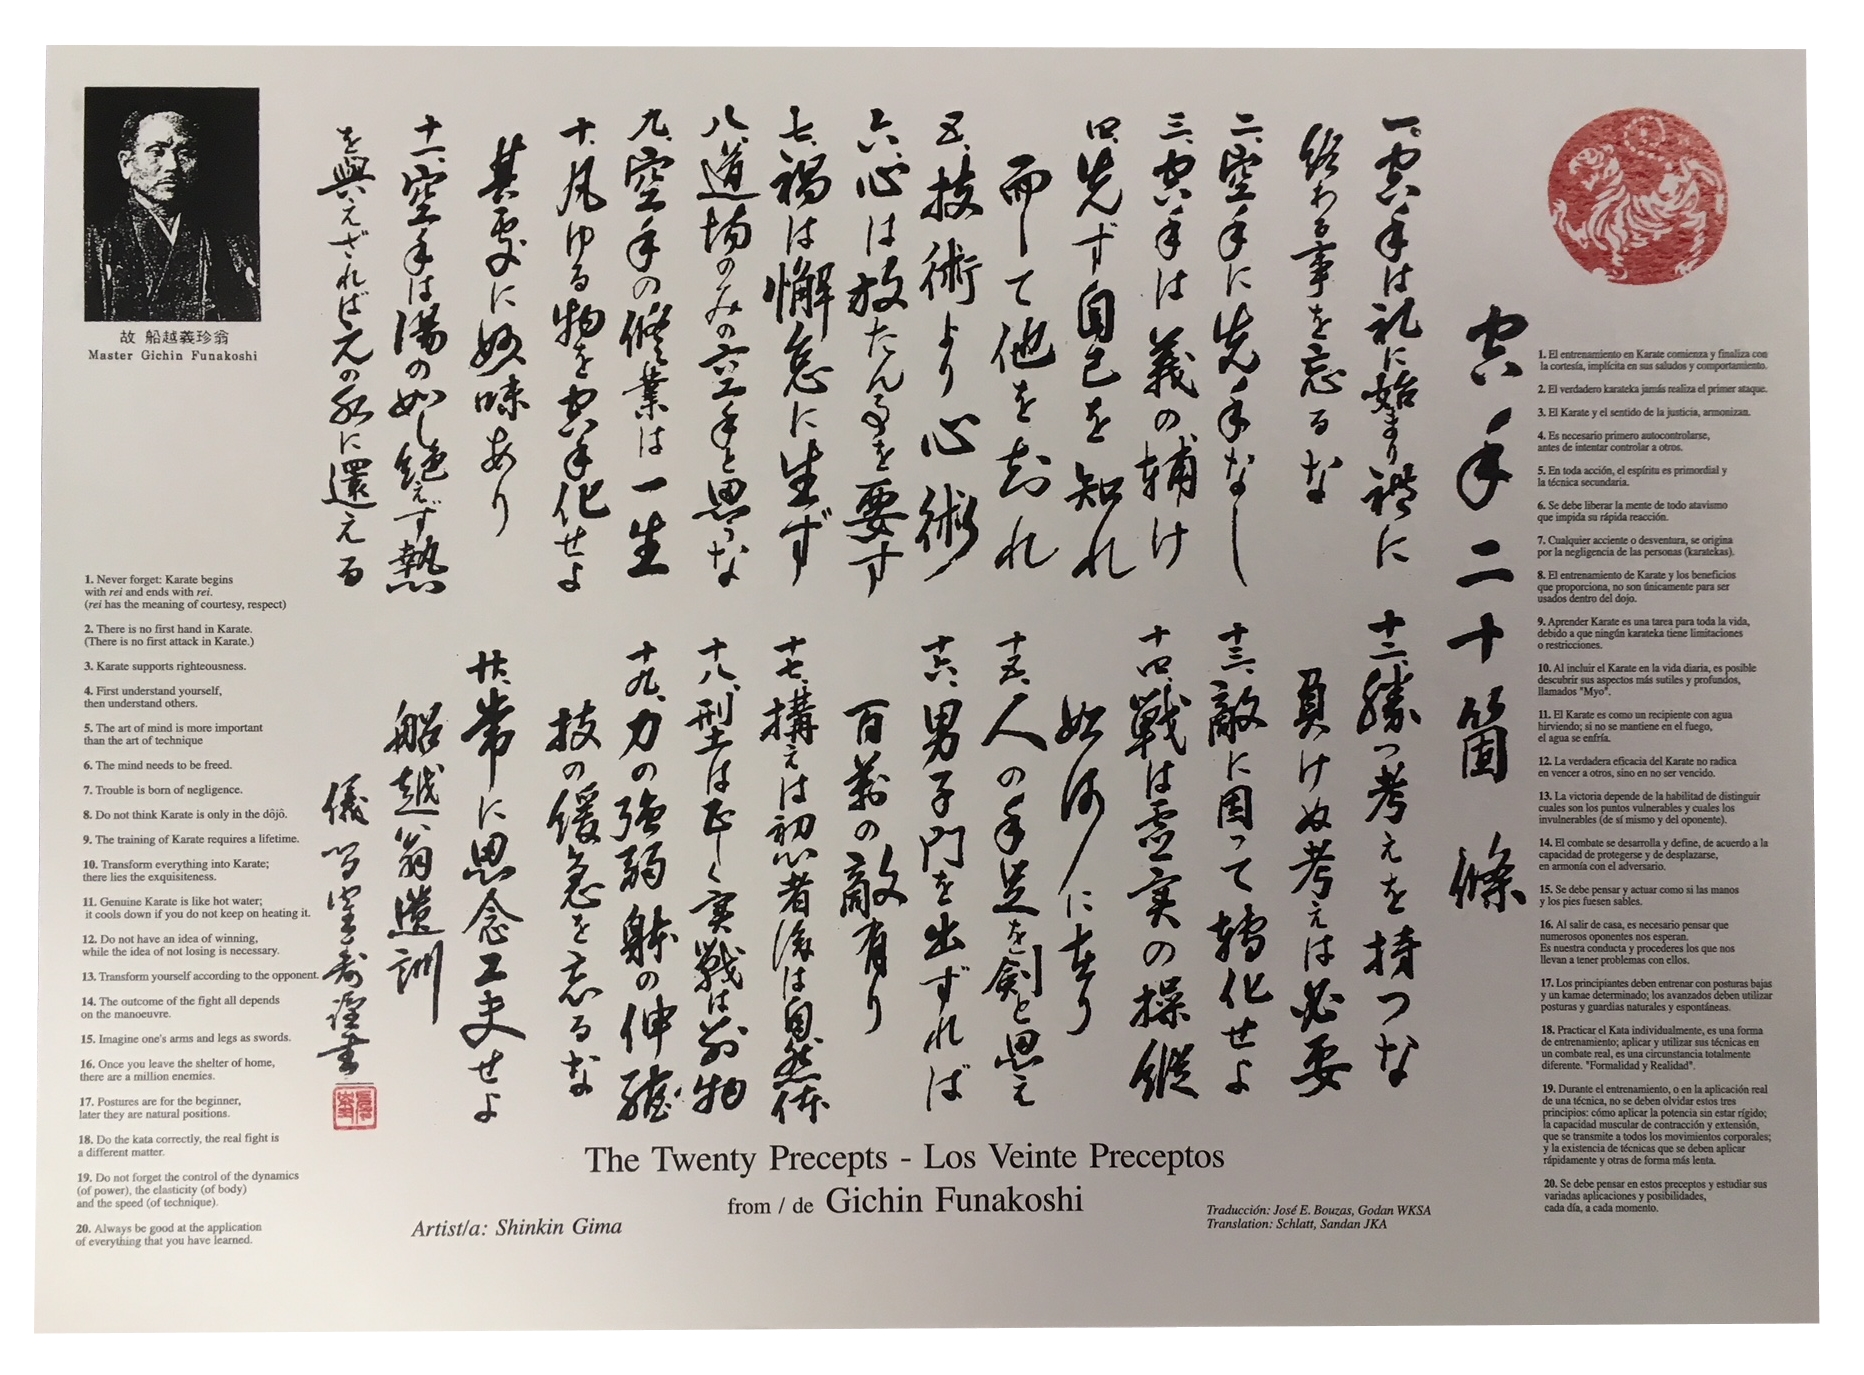 空手二十箇條
一、空手は礼に始まり礼に
終わる事を忘るな
二、空手に先手なし
三、空手は義の輔け
四、先ず自己を知れ
而して他を知れ
五、技術より心術
六、心は放たん事を要す
七、禍は懈怠に生ず
八、道場のみの空手と思うな
九、空手の修業は一生
十、凡ゆる物を空手化せよ
其処に妙味あり
十一、空手は湯の如し絶えず熱
を與えざれば元の水に還える
十二、勝つ考えを持つな
負けぬ考えは必要
十三、敵に因って轉化せよ
十四、戦は虚実の操縦
如何に在り
十五、人の手足を剣と思え
十六、男子門を出ずれば
百萬の敵有り
十七、構えは初心者後は自然体
十八、型は正しく実戦は別物
十九、力の強弱 躰の伸縮
技の緩急を忘るな
廿、常に思念工夫せよ
船越翁遺訓
故 船越義珍翁
Master Gichin Funakoshi
1. Never forget: Karate begins
with rei and ends with rei.
(rei has the meaning of courtesy, respect)
2. There is no first hand in Karate.
(There is no first attack in Karate.)
3. Karate supports righteousness.
4. First understand yourself,
then understand others.
5. The art of mind is more important
than the art of technique
6. The mind needs to be freed.
7. Trouble is born of negligence.
8. Do not think Karate is only in the dôjô.
9. The training of Karate requires a lifetime.
10. Transform everything into Karate;
there lies the exquisiteness.
11. Genuine Karate is like hot water;
it cools down if you do not keep on heating it.
12. Do not have an idea of winning,
while the idea of not losing is necessary.
13. Transform yourself according to the opponent.
14. The outcome of the fight all depends
on the manoeuvre.
15. Imagine one's arms and legs as swords.
16. Once you leave the shelter of home,
there are a million enemies.
17. Postures are for the beginner,
later they are natural positions.
18. Do the kata correctly, the real fight is
a different matter.
19. Do not forget the control of the dynamics
(of power), the elasticity (of body)
and the speed (of technique).
20. Always be good at the application
of everything that you have learned.
1. El entrenamiento en Karate comienza y finaliza con
la cortesía, implícita en sus saludos y comportamiento.
2. El verdadero karateka jamás realiza el primer ataque.
3. El Karate y el sentido de la justicia, armonizan.
4. Es necesario primero autocontrolarse,
antes de intentar controlar a otros.
5. En toda acción, el espíritu es primordial y
la técnica secundaria.
6. Se debe liberar la mente de todo atavismo
que impida su rápida reacción.
7. Cualquier acciente o desventura, se origina
por la negligencia de las personas (karatekas).
8. El entrenamiento de Karate y los beneficios
que proporciona, no son únicamente para ser
usados dentro del dojo.
9. Aprender Karate es una tarea para toda la vida,
debido a que ningún karateka tiene limitaciones
o restricciones.
10. Al incluir el Karate en la vida diaria, es posible
descubrir sus aspectos más sutiles y profundos,
llamados "Myo".
11. El Karate es como un recipiente con agua
hirviendo; si no se mantiene en el fuego,
el agua se enfría.
12. La verdadera eficacia del Karate no radica
en vencer a otros, sino en no ser vencido.
13. La victoria depende de la habilitad de distinguir
cuales son los puntos vulnerables y cuales los
invulnerables (de sí mismo y del oponente).
14. El combate se desarrolla y define, de acuerdo a la
capacidad de protegerse y de desplazarse,
en armonía con el adversario.
15. Se debe pensar y actuar como si las manos
y los pies fuesen sables.
16. Al salir de casa, es necesario pensar que
numerosos oponentes nos esperan.
Es nuestra conducta y procederes los que nos
llevan a tener problemas con ellos.
17. Los principiantes deben entrenar con posturas bajas
y un kamae determinado; los avanzados deben utilizar
posturas y guardias naturales y espontáneas.
18. Practicar el Kata individualmente, es una forma
de entrenamiento; aplicar y utilizar sus técnicas en
un combate real, es una circunstancia totalmente
diferente. "Formalidad y Realidad".
19. Durante el entrenamiento, o en la aplicación real
de una técnica, no se deben olvidar estos tres
principios: cómo aplicar la potencia sin estar rígido;
la capacidad muscular de contracción y extensión,
que se transmite a todos los movimientos corporales;
y la existencia de técnicas que se deben aplicar
rápidamente y otras de forma más lenta.
20. Se debe pensar en estos preceptos y estudiar sus
variadas aplicaciones y posibilidades,
cada día, a cada momento.
The Twenty Precepts - Los Veinte Preceptos
from / de Gichin Funakoshi
Artist/a: Shinkin Gima
Traducción: José E. Bouzas, Godan WKSA
Translation: Schlatt, Sandan JKA